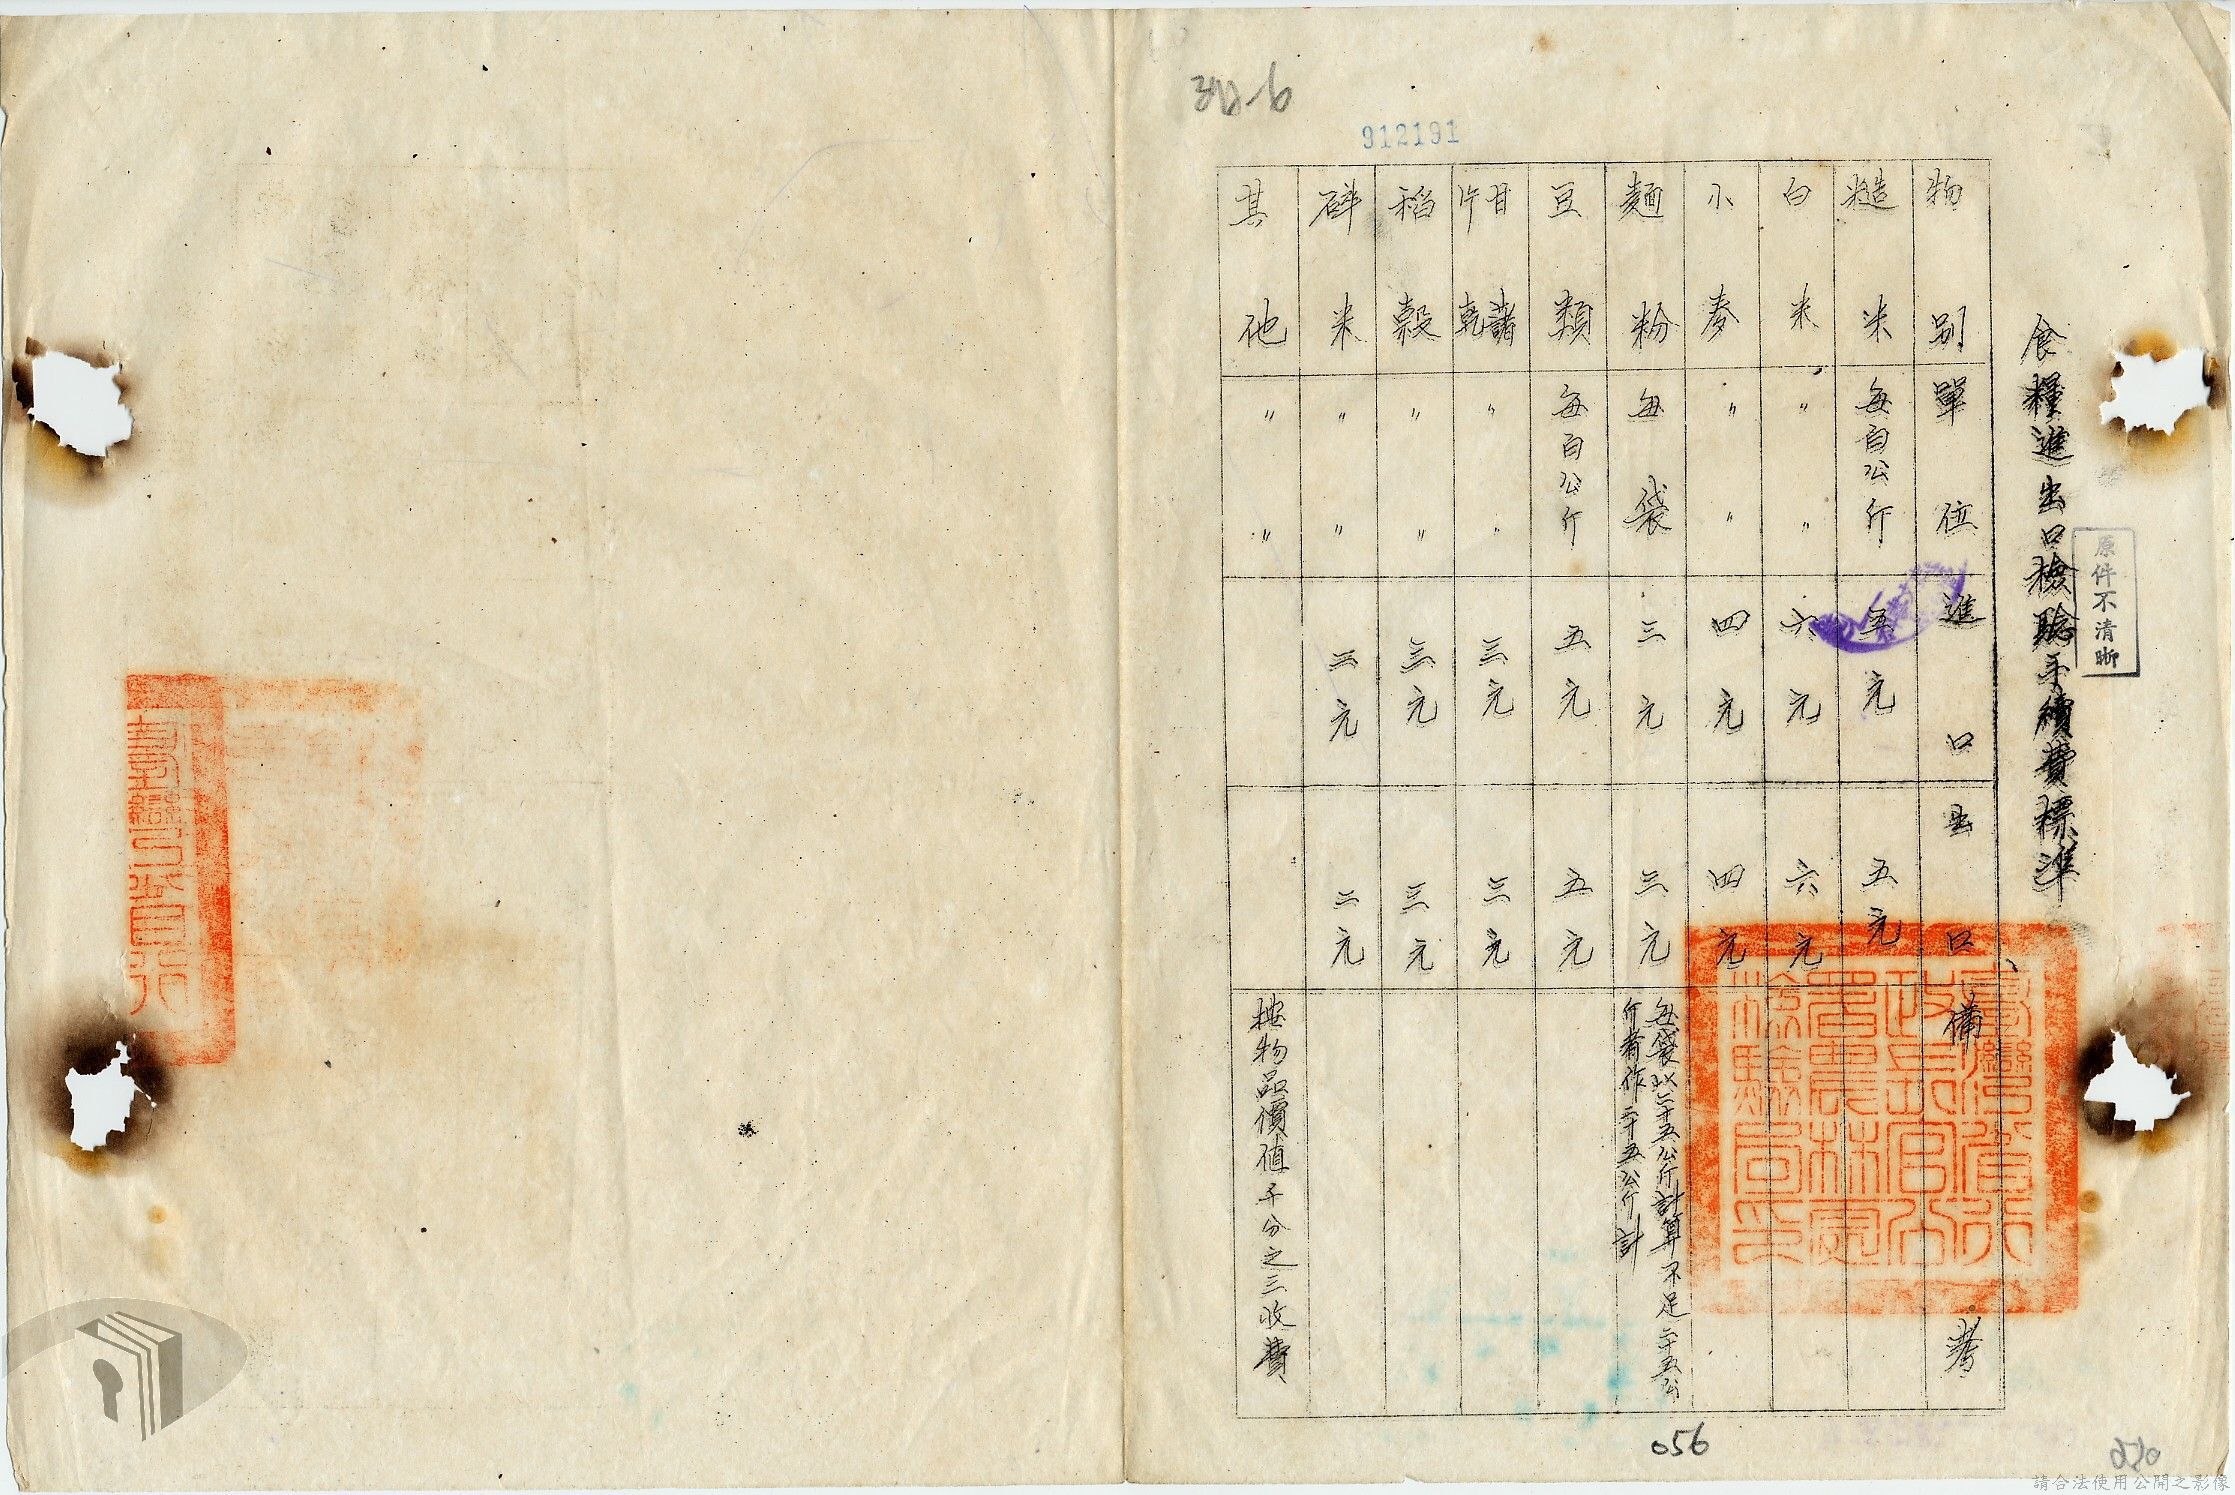 912191
食糧進出口檢驗手續費標準
原件不清晰
物別 單位 進口 出口 備考
糙米 每百公斤 五元 五元
白米 〃 〃 六元 六元
小麥 〃 〃 四元 四元
麵粉 每袋 三元 三元 每袋以二十五公斤計算不足二十五公斤者作二十五公斤計
豆類 每百公斤 五元 五元
甘藷乾片 〃 〃 三元 三元
稻穀 〃 〃 三元 三元
碎米 〃 〃 二元 二元
其他 〃 〃 按物品價值千分之三收費
臺灣省行
政長官公
署農林處
檢驗局印
臺灣省行
056
請合法使用公開之影像